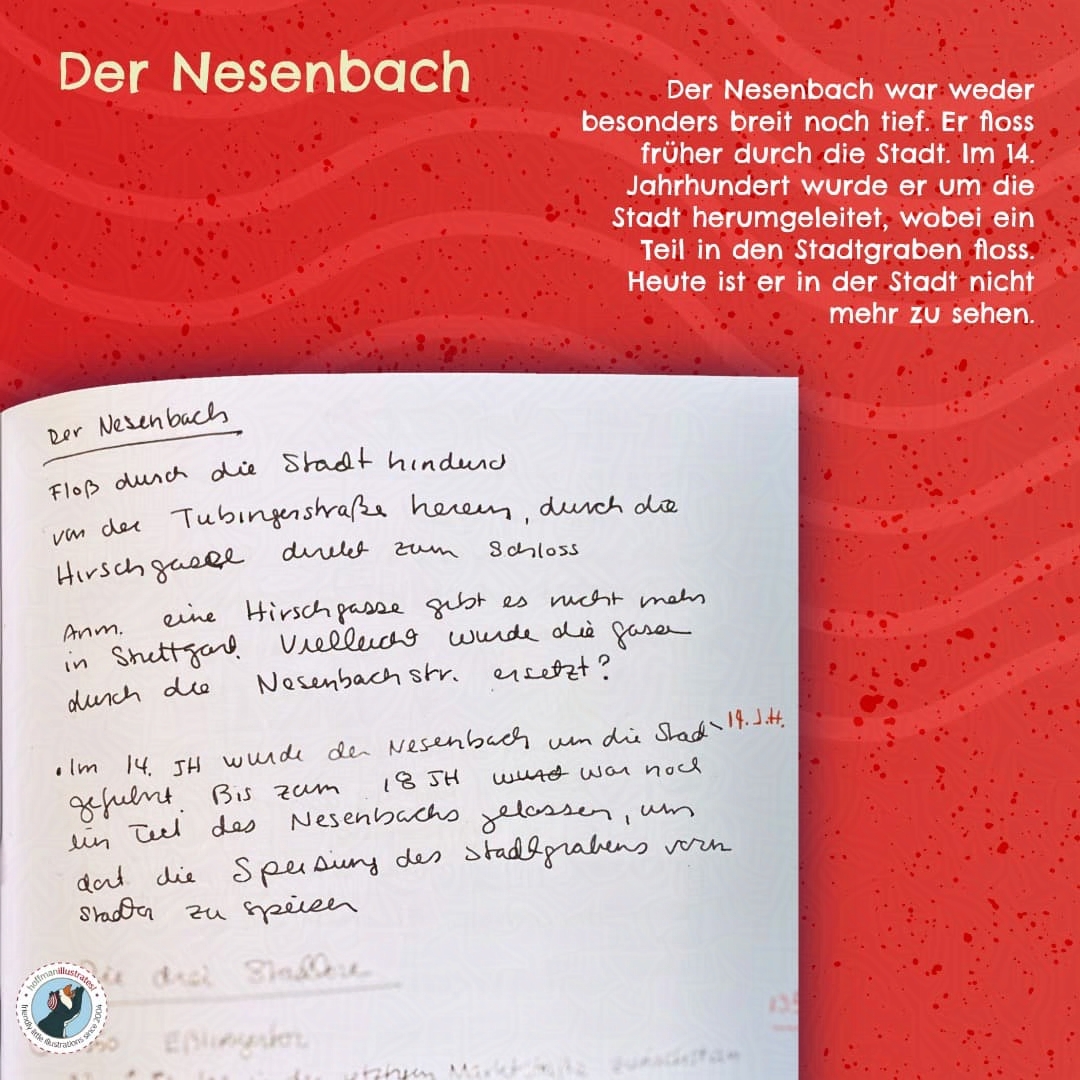 Der Nesenbach
Der Nesenbach war weder
besonders breit noch tief. Er floss
früher durch die Stadt. Im 14.
Jahrhundert wurde er um die
Stadt herumgeleitet, wobei ein
Teil in den Stadtgraben floss.
Heute ist er in der Stadt nicht
mehr zu sehen.
Der Nesenbach
Floß durch die Stadt
von der Tubingerstraße herein, durch die
Hirschgasse direkt zum Schloss
Anm. eine Hirschgasse gibt es nicht mehr
in Stuttgart. Vielleicht wurde die gasse
durch die Nesenbachstr. ersetzt?
• Im 14. JH wurde der Nesenbach um die Stadt 14. J.H.
geführt. Bis zum 18 JH wurd war noch
ein Teil des Nesenbachs gelassen, um
dort die Speisung des Stadtgrabens
zu speisen
Die drei Stadttore
Eßlingertor
hoffmanillustrates!
friendly little illustrations since 2004